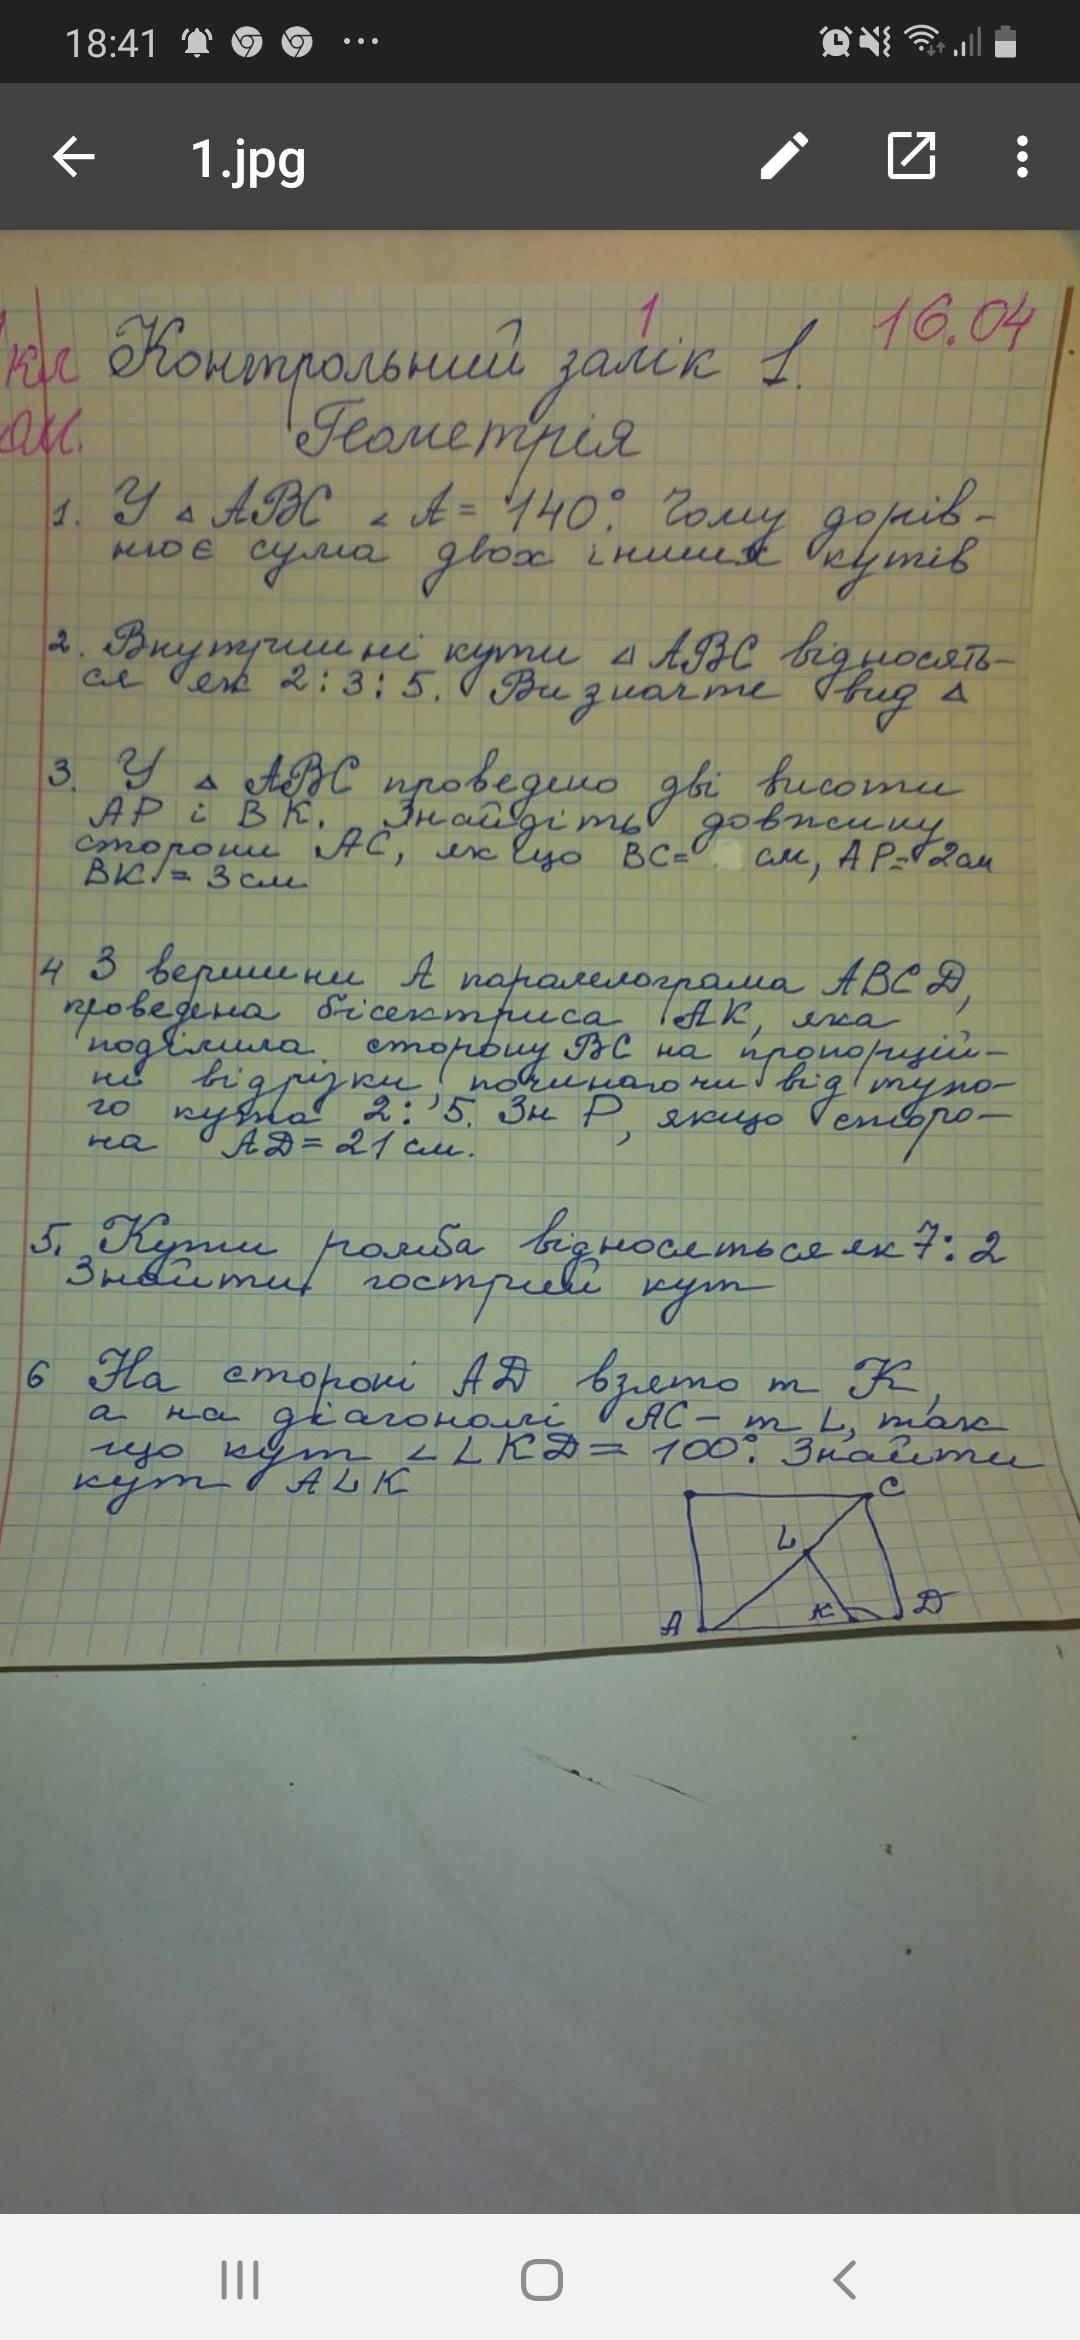 18:41
1.jpg
1 16.04
кл Контрольний залік 1.
Геометрія
1. У △ ABC ∠ A = 140°. Чому дорів-
нює сума двох інших кутів
2. Внутрішні кути △ ABC відносять-
ся як 2:3:5. Визначте вид △
3. У △ ABC проведено дві висоти
AP і BK. Знайдіть довжину
сторони AC, якщо BC= см, AP=2см
BK = 3см.
4 З вершини A паралелограма ABCD,
проведена бісектриса AK, яка
поділила сторону BC на пропорцій-
ні відрізки починаючи від тупо-
го кута 2:5. Зн P, якщо сторо-
на AD = 21 см.
5. Кути ромба відносяться як 7:2
Знайти гострий кут
6 На стороні AD взято т K,
а на діагоналі AC – т L, так
що кут ∠ LKD = 100°. Знайти
кут ALK
C
L
A K D